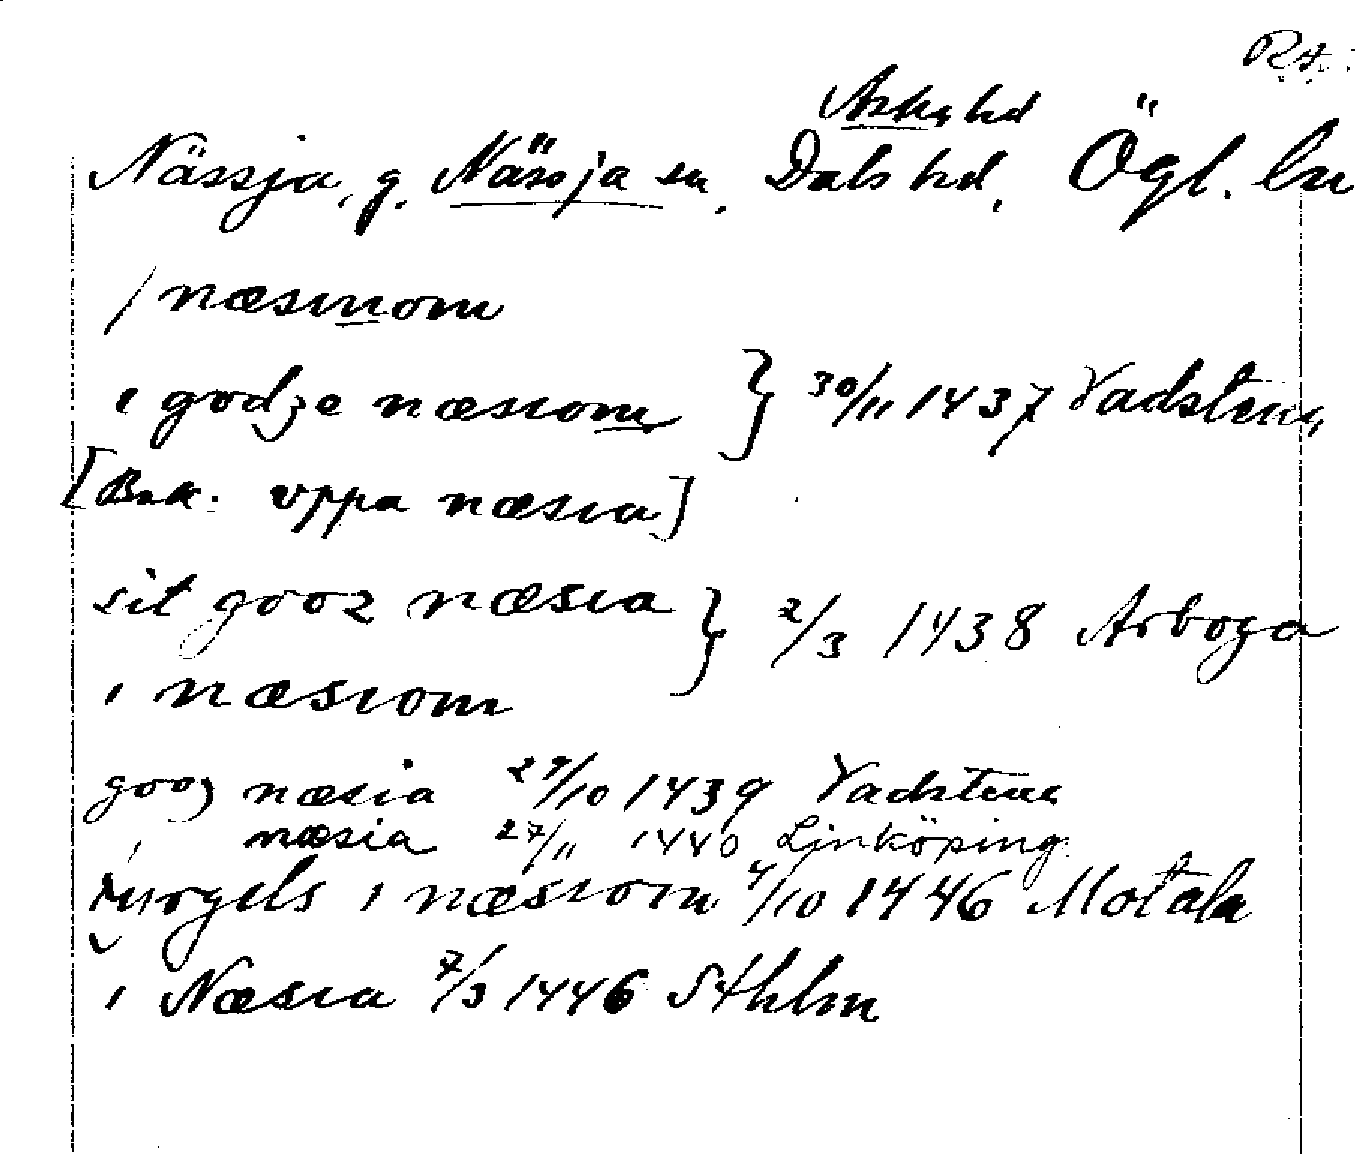 RA.
Aska hd
Nässja, g. Nässja sn, Dals hd, Ögl. ln
/ næsinom
i godze næsiom } 30/11 1437 Vadstena
[Bak. vppa næsia]
sit gooz næsia } 2/3 1438 Arboga
i næsiom
gooz næsia 29/10 1439 Vadstena
i næsia 27/11 1440 Linköping
i næsiom 4/10 1446 Motala
i Næsia 7/3 1446 Sthlm